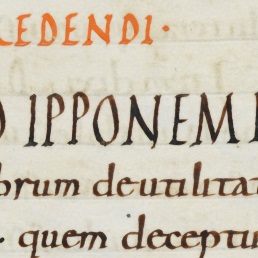 REDENDI·
O IPPONEM
brum deutilitat
· quem deceptu